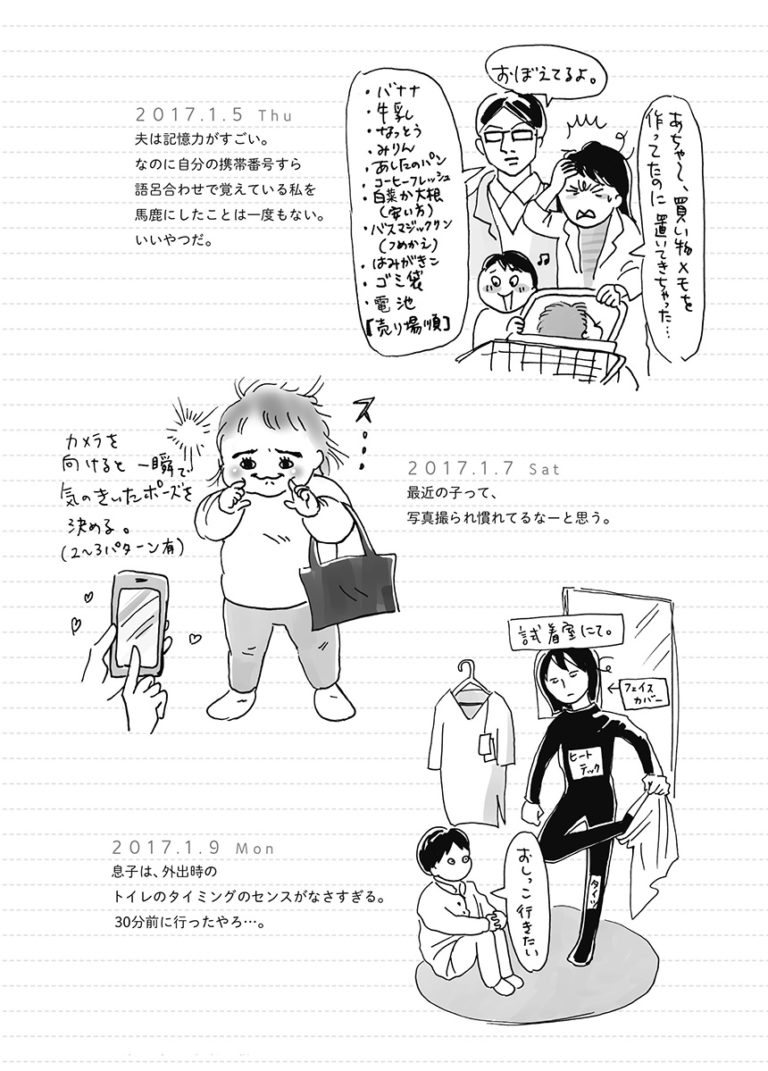 2017.1.5 Thu
夫は記憶力がすごい。
なのに自分の携帯番号すら
語呂合わせで覚えている私を
馬鹿にしたことは一度もない。
いいやつだ。
おぼえてるよ。
あちゃ〜、買い物メモを
作ってたのに置いてきちゃった…
・バナナ
・牛乳
・なっとう
・みりん
・あしたのパン
・コーヒーフレッシュ
・白菜か大根
(安い方)
・バスマジックリン
(つめかえ)
・はみがきこ
・ゴミ袋
・電池
【売り場順】
カメラを
向けると一瞬で
気のきいたポーズを
決める。
(2〜3パターン有)
ス…
2017.1.7 Sat
最近の子って、
写真撮られ慣れてるなーと思う。
試着室にて。
フェイス
カバー
ヒート
テック
タイツ
おしっこ行きたい
2017.1.9 Mon
息子は、外出時の
トイレのタイミングのセンスがなさすぎる。
30分前に行ったやろ…。